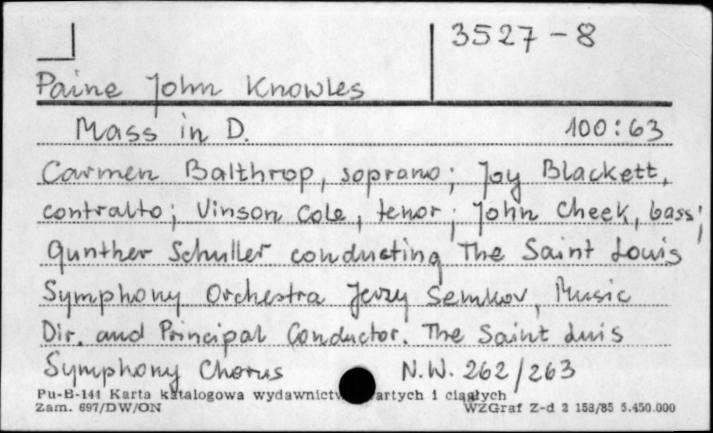 3527-8
Paine John Knowles
Mass in D. 100:63
Carmen Balthrop, soprano; Joy Blackett,
contralto; Vinson Cole, tenor; John Cheek, bass;
Gunther Schuller conducting The Saint Louis
Symphony Orchestra Jerzy Semkov, Music
Dir. and Principal Conductor. The Saint Luis
Symphony Chorus N.W. 262/263
Pu-B-144 Karta katalogowa wydawnictw zwartych i ciągłych
Zam. 697/DW/ON WZGraf Z-d 2 158/85 5.450.000